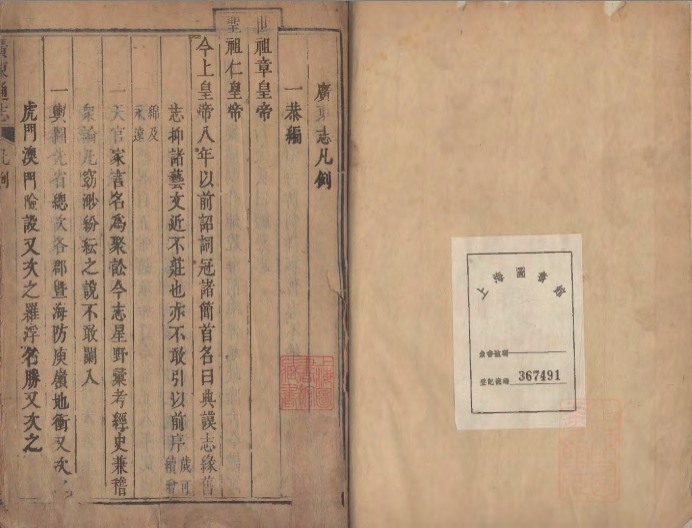 上海圖書館
登記號碼 367491
廣東志凡例
一恭編
世祖章皇帝
聖祖仁皇帝
今上皇帝八年以前詔詞冠諸簡首名曰典謨志緣舊
志抑諸藝文近不莊也亦不敢引以前序歲可續君
綿及永遠
一天官家言名爲聚訟今志星野彙考經史兼稽
衆論凡窈渺紛紜之說不敢闌入
一輿圖先省總次各郡暨海防庾嶺地衝又次
虎門澳門險設又次之羅浮名勝又次之
廣東通志 凡例
上海圖書館藏書